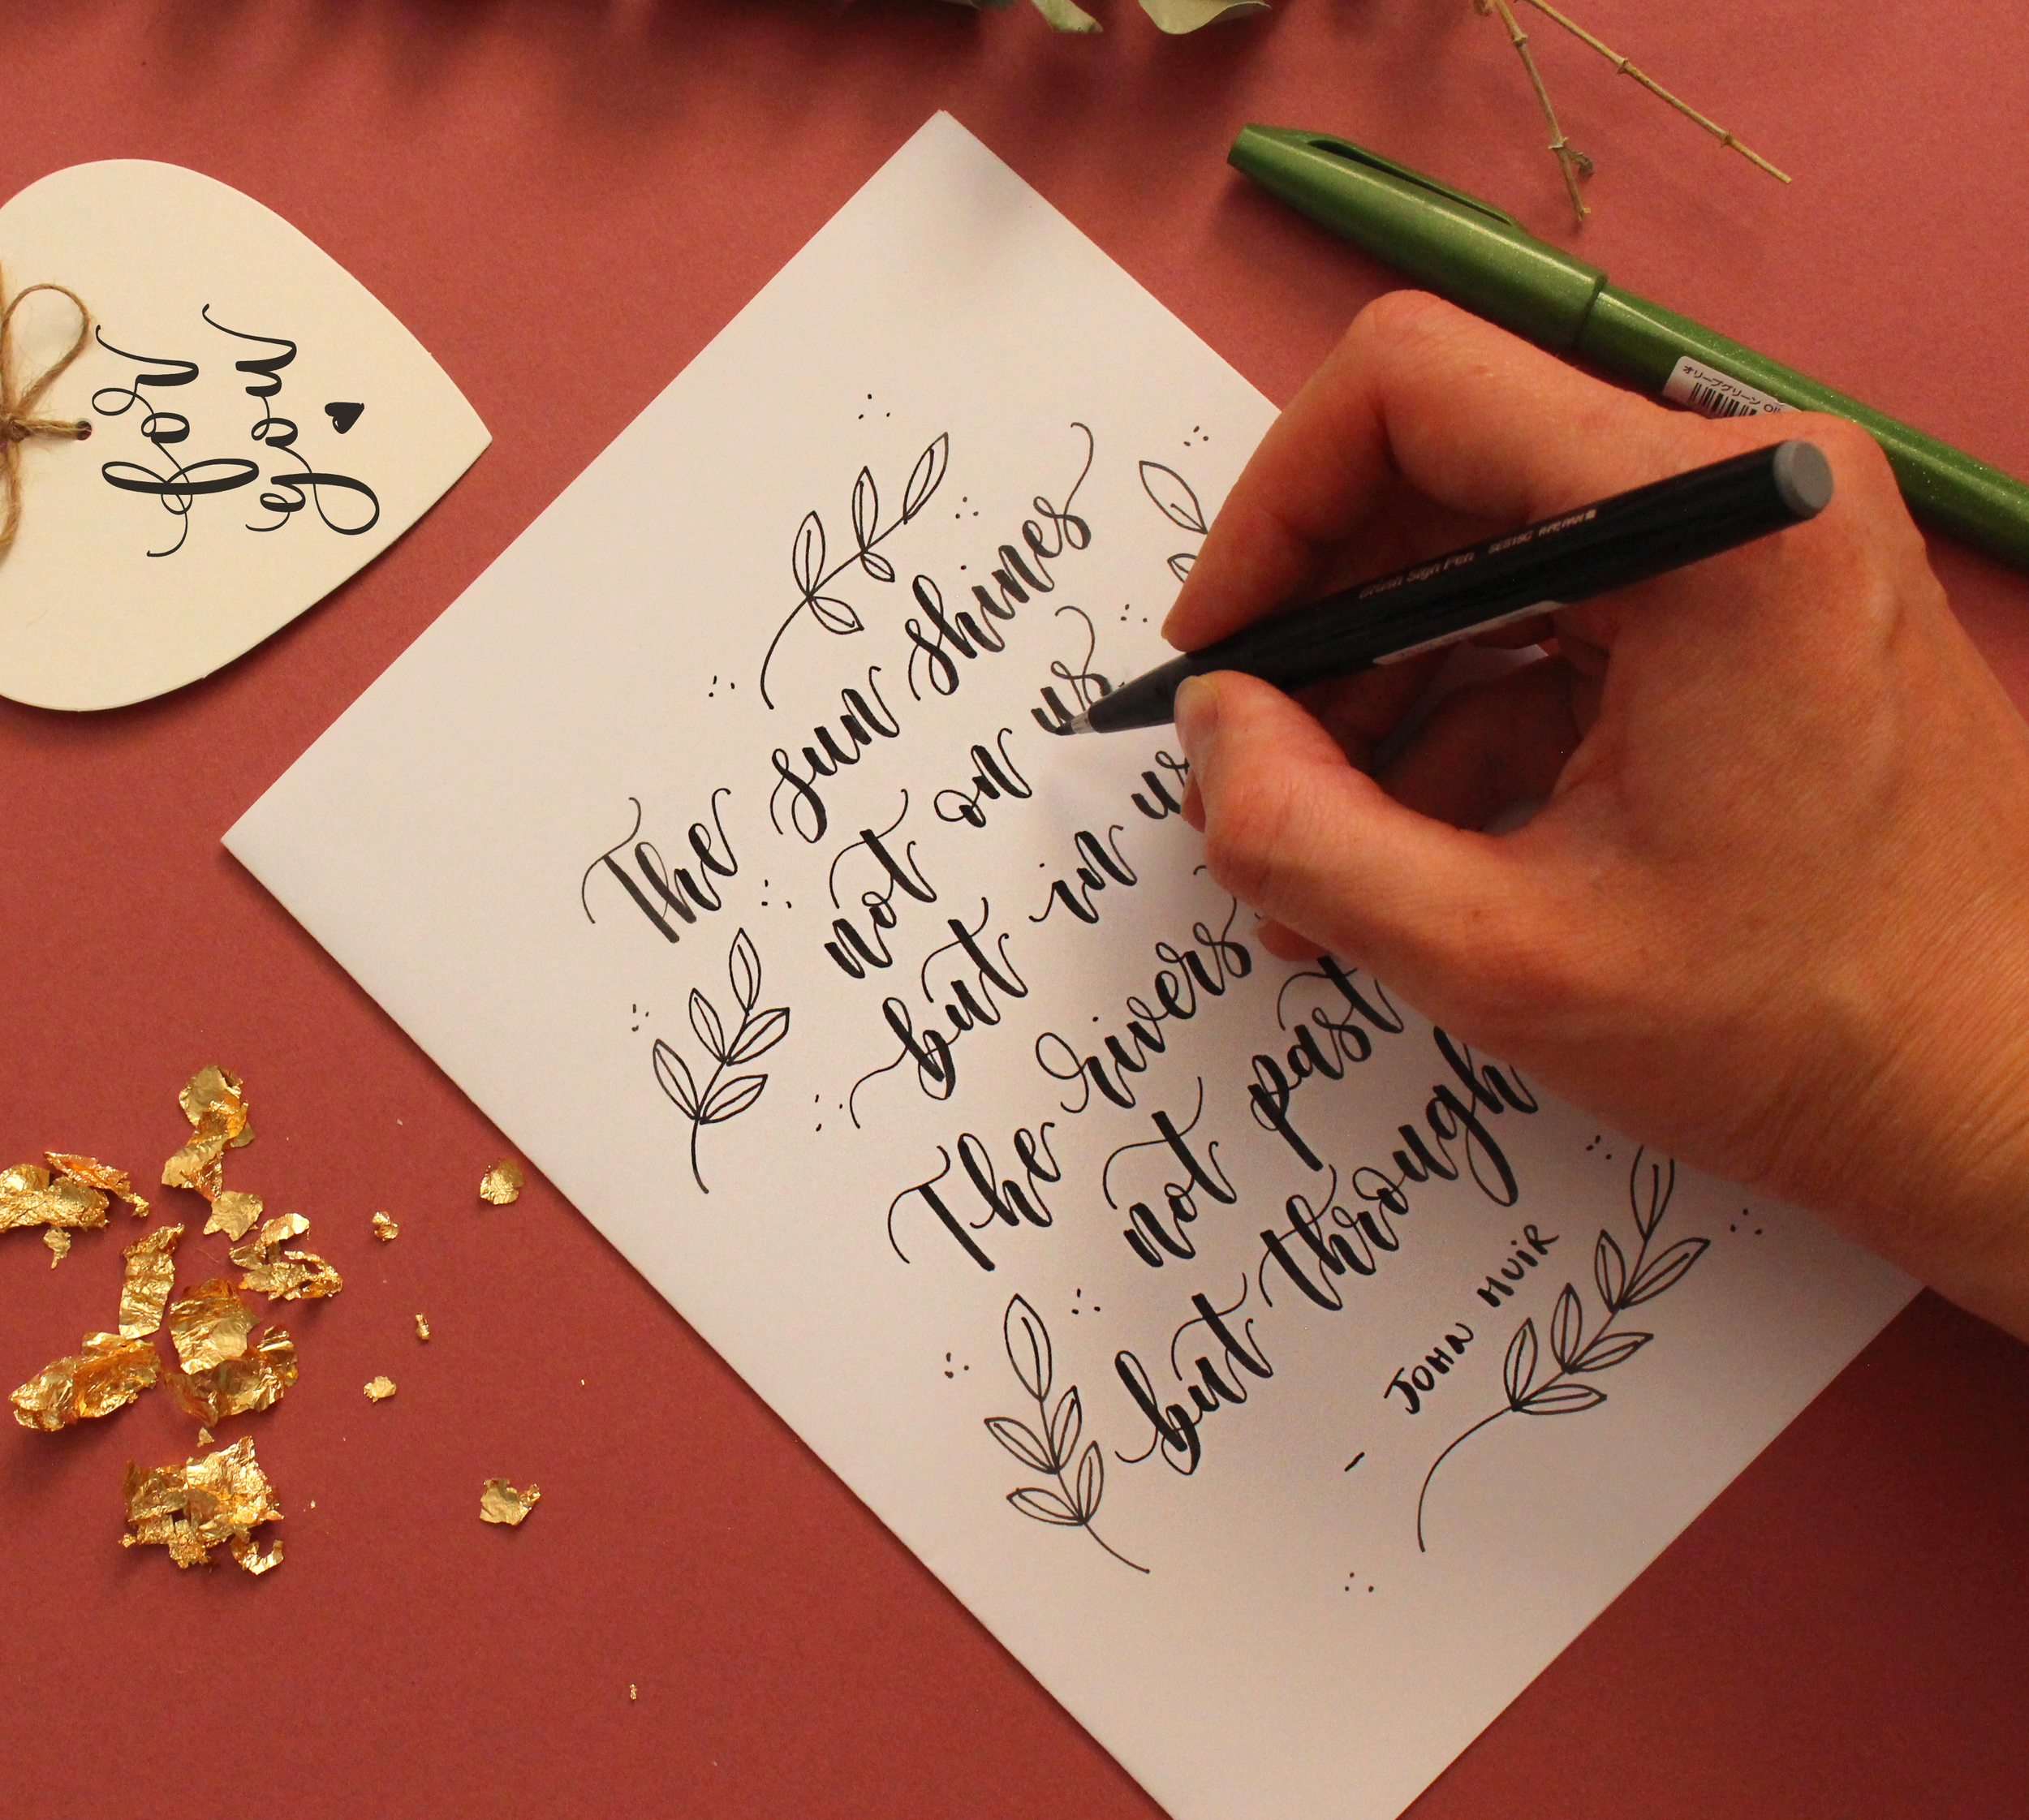 for
you
The sun shines
not on us
but in us
The rivers
not past
but through
- JOHN MUIR
Brush Sign Pen
オリーブグリーン